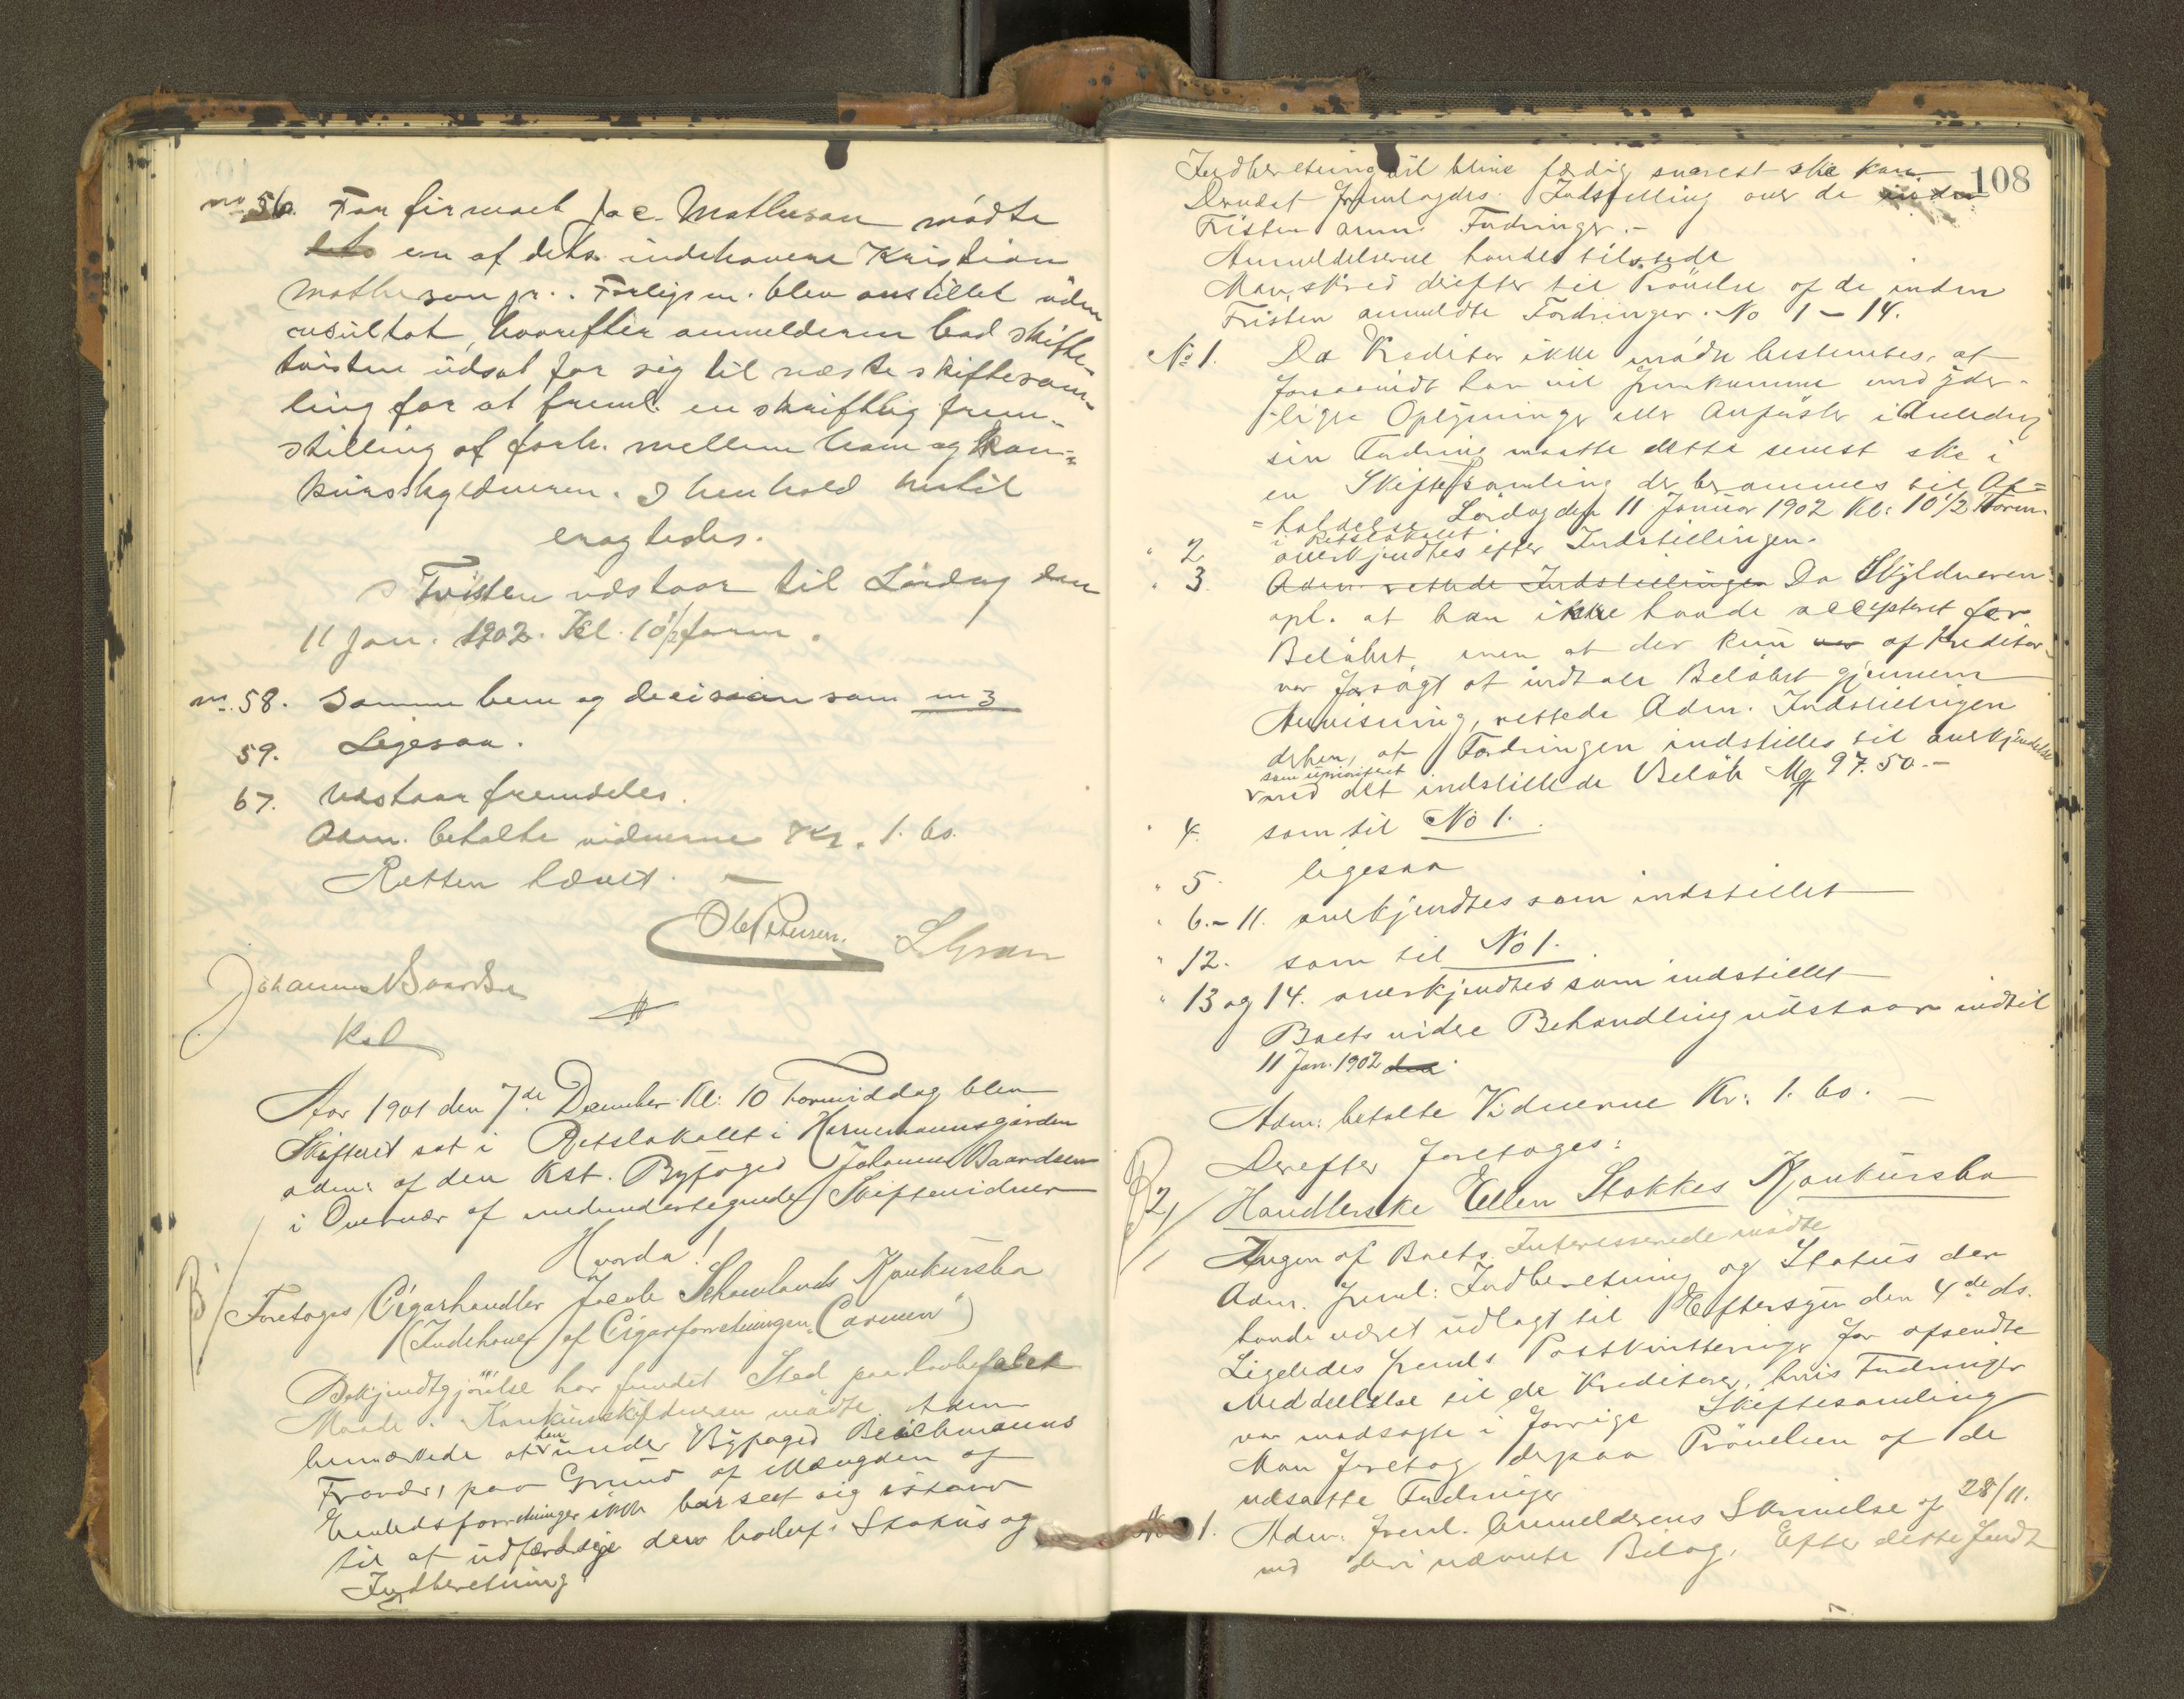 no 56. For firmaet Jac. Mathesen mødte
en af dets indehavere Kristian
Mathesen jr. Forligsm. blev anstillet uden
resultat, hvorefter anmelderen bad skifte-
tvisten udsat for sig til næste skiftesam-
ling for at freml. en skriftlig frem-
stilling af forh. mellem ham og kon-
kursskyldneren. I henhold hertil
eragtedes.
Tvisten udstaar til Lördag den
11 Jan. 1902. Kl. 10 1/2 form.
no. 58. Samme bem og decision som no 3
59. Ligesaa.
67. Udstaar fremdeles.
Adm. betalte vidnerne Kr. 1.60.
Retten hævet. —
Ole Petersen. L Gran
Johannes Baardsen
Kst
Aar 1901 den 7de December Kl: 10 Formiddag blev
Skifteret sat i Retslokalet i Hornemannsgården
adm: af den Kst. Byfoged Johannes Baardsen
i Overvær af medundertegnede Skiftevidner
Hvorda!
Foretoges Cigarhandler Jacob Schawlands Konkursbo
(Indehaver af Cigarforretningen "Carmen")
Bekjendtgjörelse har fundet Sted paa lovbefalet
Maade. Konkursskyldneren mödte. Adm
bemærkede at han under Byfoged Beichmanns
Fravær, paa Grund af Mængden af
Embedsforretninger ikke har seet sig istand
til at udfærdige den bebef. Status og
Indberetning
108
Indberetning vil blive færdig snarest ske kan.
Derudat fremlagdes Indstilling over de inden
Fristen anm. Fordringer. -
Anmeldelserne havdes tilstede
Man skred derefter til Prövelse af de inden
Fristen anmeldte Fordringer. No 1 - 14.
No 1. Da Kreditor ikke mödte bestemtes, at
forsaavidt han vil fremkomme med yder-
ligere Oplysninger eller Anförsler i Anledng
sin Fordring maatte dette senest ske i
en Skiftesamling der berammes til Af=
=holdelse Lördag den 11 Januar 1902 Kl: 10 1/2 Form.
i Retslokalet
" 2. anerkjendtes efter Indstillingen.
" 3. Adm. rettede Indstillingen Da Skyldneren
opl. at han ikke havde accepteret for
Belöbet men at der kun var af Kreditor
var forsögt at indtale Belöbet gjennem
Anvisning, rettede Adm. Indstillingen
derhen, at Fordringen indstilles til anerkjendelse
som uprioriteret
med det indstillede Belöb Mg 97.50.-
" 4. som til No 1.
" 5. ligesaa
" 6.-11. anerkjendtes som indstillet
" 12. som til No 1.
" 13 og 14. anerkjendtes som indstillet
Boets videre Behandling udstaar indtil
11 Jan. 1902 den
Adm: betalte Vidnerne Kr: 1.60. —
Derefter foretoges:
2/ Handlerske Ellen Stokkes Konkursbo
Ingen af Boets Interesserede mödte
Adm. freml: Indberetning og Status der
havde været udlagt til Eftersyn den 4de ds.
Ligeledes fremls Postkvitteringer for afsendte
Meddelelse til de Kreditorer, hvis Fordringer
var modsagte i forrige Skiftesamling
Man foretog derpaa Prövelsen af de
udsatte Fordringer
No 1. Adm. freml. Anmelderens Skrivelse af 28/11.
med deri nævnte Bilag. Efter dette fandt